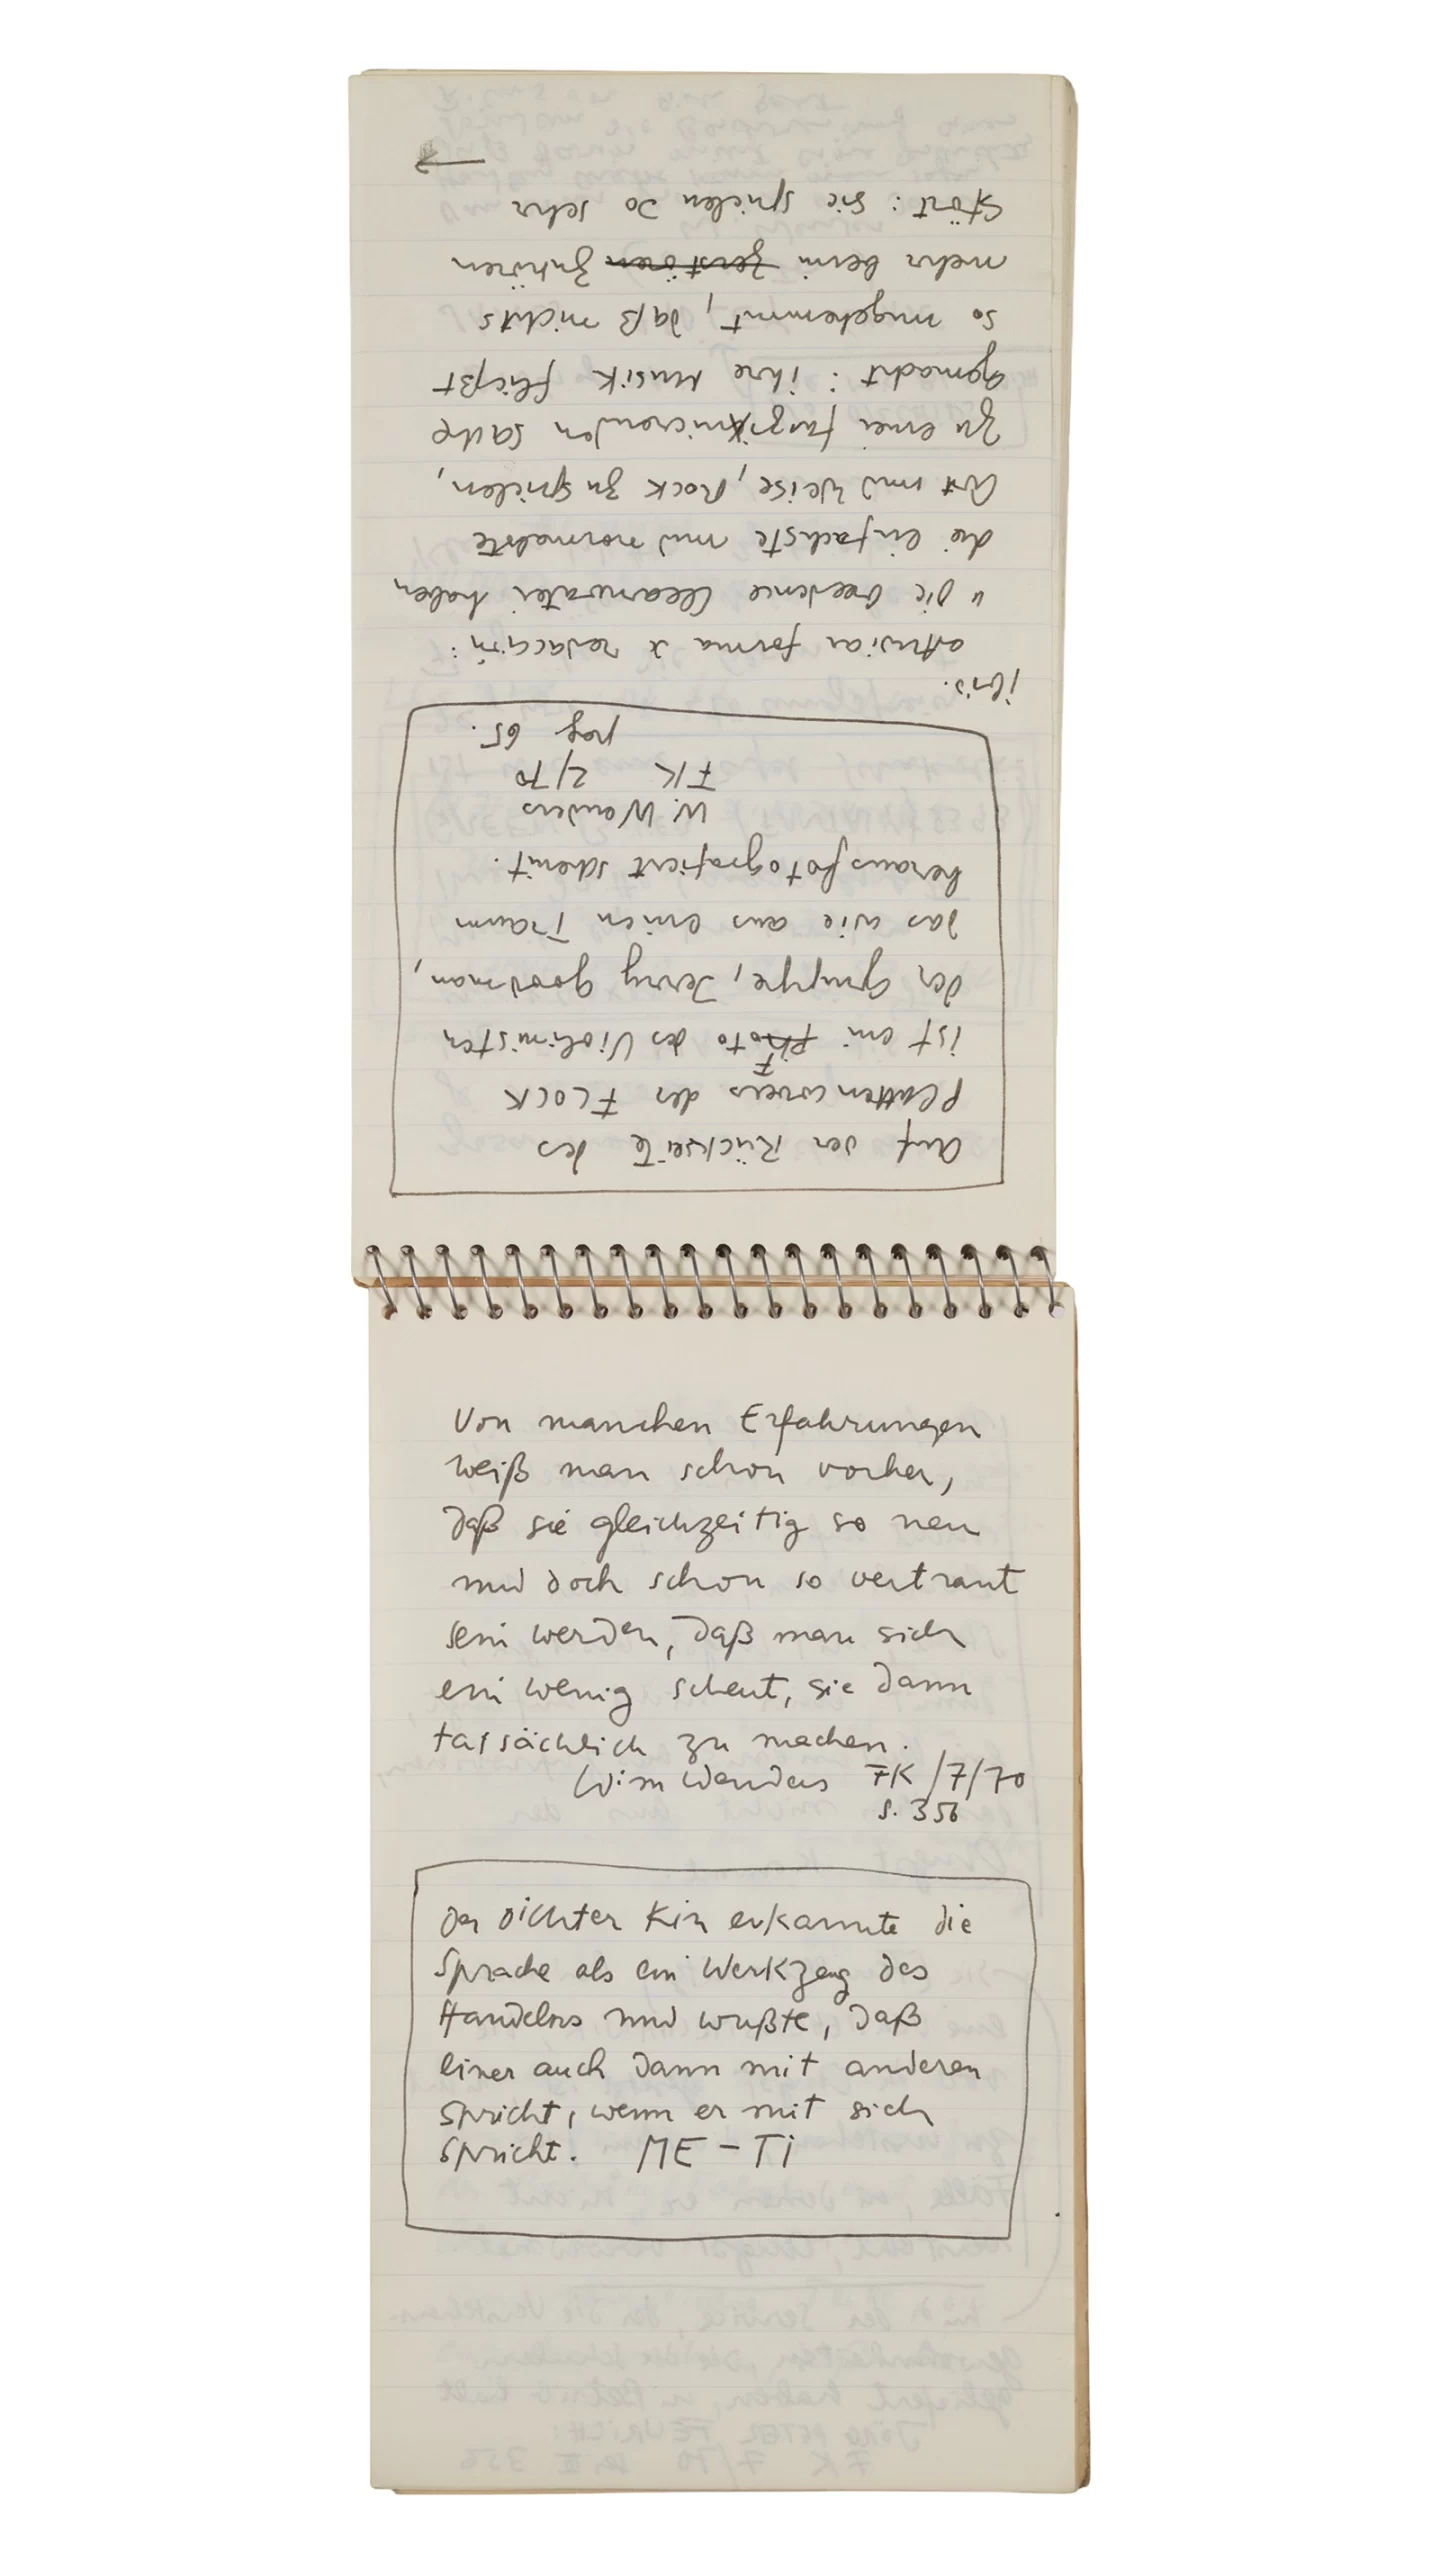 Auf der Rückseite des
Plattencovers der FLOCK
ist ein Photo des Violinisten
F
der Gruppe, Jerry Goodman,
das wie aus einen Traum
herausfotografiert scheint.
W. Wenders
FK 2/70
pag 65.
ibid.
attuiar forma x redacción:
"die Creedence Clearwater haben
die einfachste und normalste
Art und Weise, Rock zu spielen,
zu einer faszinierenden Sache
gemacht: ihre Musik fließt
so ungehemmt, daß nichts
mehr beim zerstören Zuhören
stört: sie spielen so sehr
Von manchen Erfahrungen
weiß man schon vorher,
daß sie gleichzeitig so neu
und doch schon so vertraut
sein werden, daß man sich
ein wenig scheut, sie dann
tatsächlich zu machen.
Wim Wenders FK/7/70
S. 356
Der Dichter Kin erkannte die
Sprache als ein Werkzeug des
Handelns und wußte, daß
einer auch dann mit anderen
spricht, wenn er mit sich
spricht. ME-TI